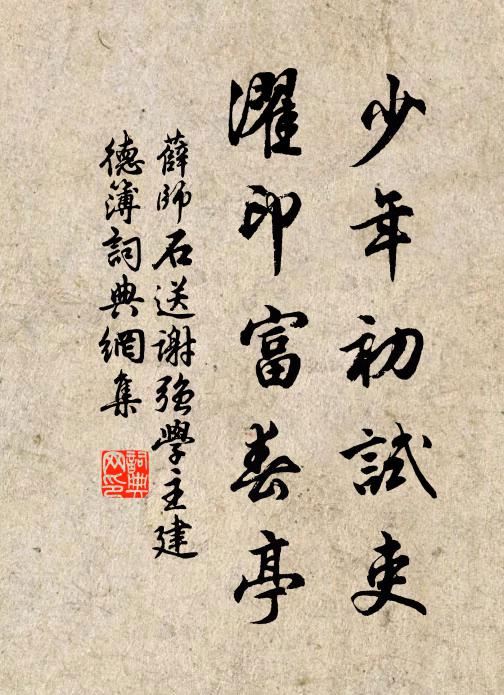 少年初試吏
濯印富春亭
薛師石送謝强學主建
德簿詞典網集
詞典网印